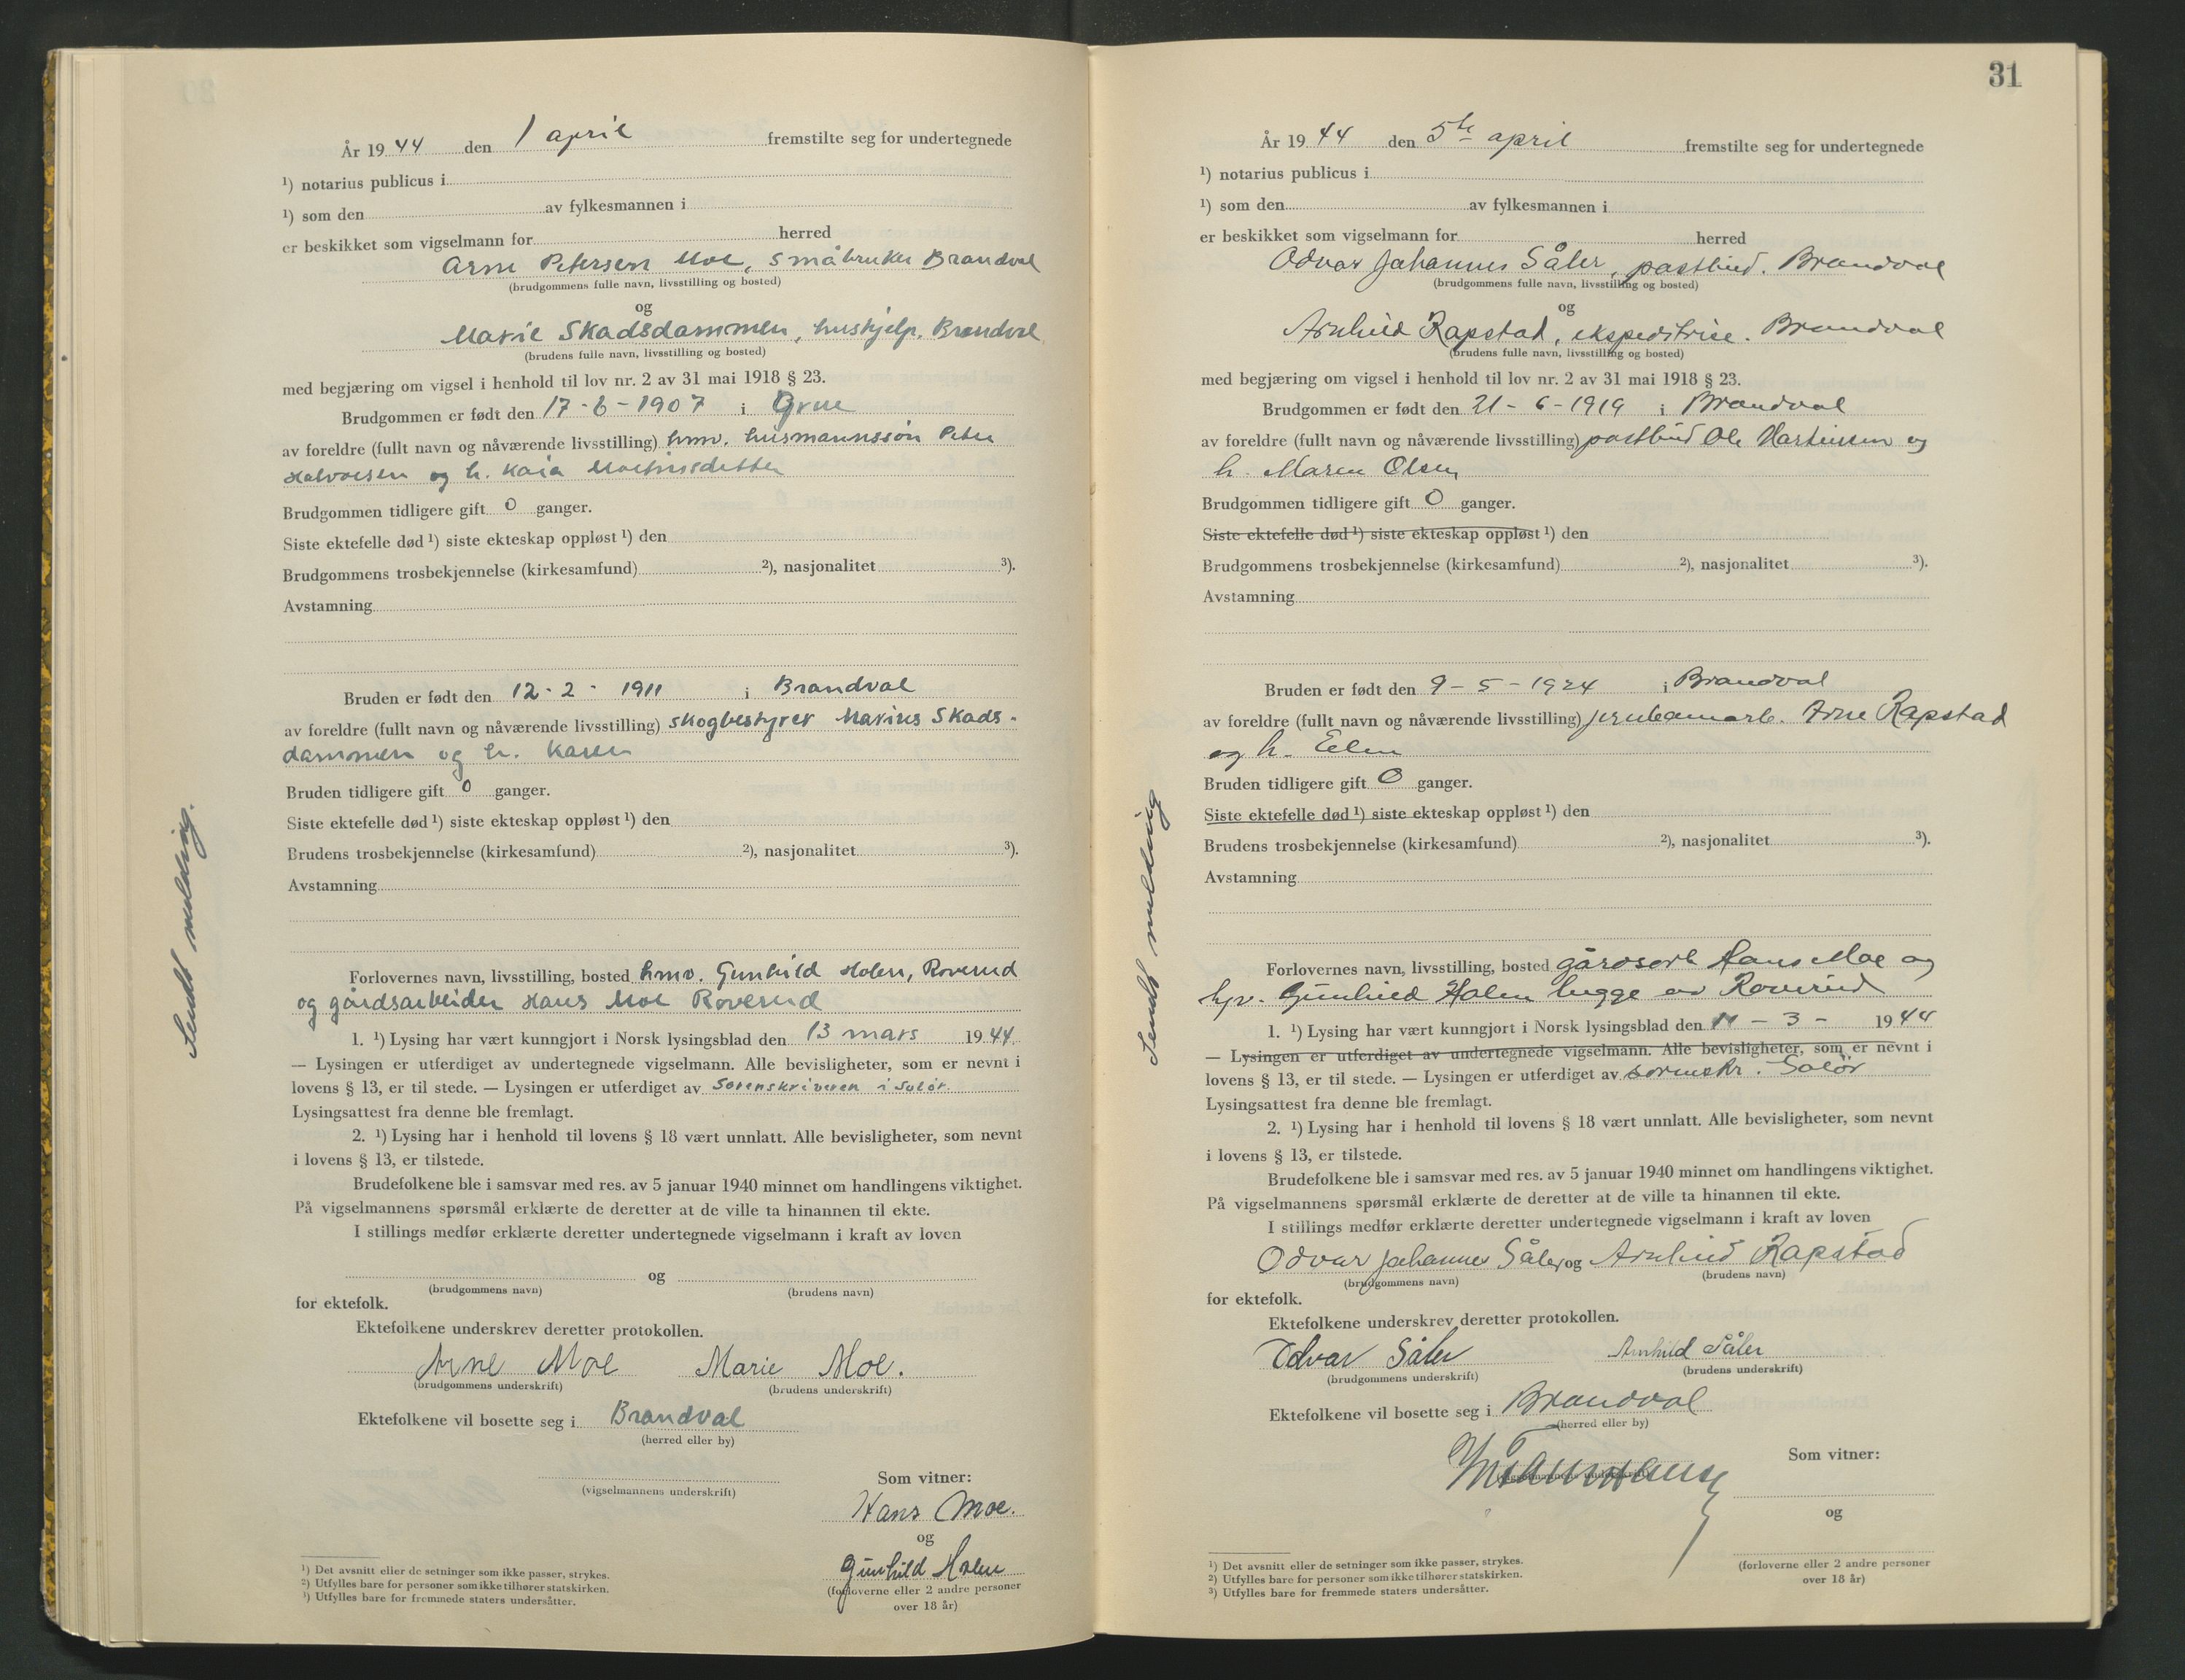 År 19 44 den 1 april fremstilte seg for undertegnede
¹) notarius publicus i
¹) som den av fylkesmannen i
er beskikket som vigselmann for herred
Arne Petersen Moe, småbruker Brandval
(brudgommens fulle navn, livsstilling og bosted)
og
Marie Skadsdammen, hushjelp. Brandval
(brudens fulle navn, livsstilling og bosted)
med begjæring om vigsel i henhold til lov nr. 2 av 31 mai 1918 § 23.
Brudgommen er født den 17-6-1907 i Grue
av foreldre (fullt navn og nåværende livsstilling) hmv. husmannssøn Peter
Halvorsen og h. Kaia
Brudgommen tidligere gift 0 ganger.
Siste ektefelle død ¹) siste ekteskap oppløst ¹) den
Brudgommens trosbekjennelse (kirkesamfund) ²), nasjonalitet ³).
Avstamning
Bruden er født den 12-2-1911 i Brandval
av foreldre (fullt navn og nåværende livsstilling) skogbestyrer Marius Skads-
dammen og h. Karen
Bruden tidligere gift 0 ganger.
Siste ektefelle død ¹) siste ekteskap oppløst ¹) den
Brudens trosbekjennelse (kirkesamfund) ²), nasjonalitet ³).
Avstamning
Forlovernes navn, livsstilling, bosted hmv. Gunhild Holen, Roverud
og gårdsarbeider Hans Moe Roverud
1. ¹) Lysing har vært kunngjort i Norsk lysingsblad den 13 mars 19 44.
— Lysingen er utferdiget av undertegnede vigselmann. Alle bevisligheter, som er nevnt i
lovens § 13, er til stede. — Lysingen er utferdiget av Sorenskriveren i Solør.
Lysingsattest fra denne ble fremlagt.
2. ¹) Lysing har i henhold til lovens § 18 vært unnlatt. Alle bevisligheter, som nevnt
i lovens § 13, er tilstede.
Brudefolkene ble i samsvar med res. av 5 januar 1940 minnet om handlingens viktighet.
På vigselmannens spørsmål erklærte de deretter at de ville ta hinannen til ekte.
I stillings medfør erklærte deretter undertegnede vigselmann i kraft av loven
og
(brudgommens navn) (brudens navn)
for ektefolk.
Ektefolkene underskrev deretter protokollen.
Arne Moe Marie Moe.
(brudgommens underskrift) (brudens underskrift)
Ektefolkene vil bosette seg i Brandval
(herred eller by)
Som vitner:
(vigselmannens underskrift)
Hans Moe.
og
Gunhild Holen
(forloverne eller 2 andre personer
over 18 år)
¹) Det avsnitt eller de setninger som ikke passer, strykes.
²) Utfylles bare for personer som ikke tilhører statskirken.
³) Utfylles bare for fremmede staters undersåtter.
Sendt melding.
31
År 19 44 den 5te april fremstilte seg for undertegnede
¹) notarius publicus i
¹) som den av fylkesmannen i
er beskikket som vigselmann for herred
Odvar Johannes Såler, postbud. Brandval
(brudgommens fulle navn, livsstilling og bosted)
og
Arnhild Rapstad, ekspeditrise. Brandval
(brudens fulle navn, livsstilling og bosted)
med begjæring om vigsel i henhold til lov nr. 2 av 31 mai 1918 § 23.
Brudgommen er født den 21-6-1919 i Brandval
av foreldre (fullt navn og nåværende livsstilling) postbud Ole Martinsen og
h. Maren Olsen
Brudgommen tidligere gift 0 ganger.
Siste ektefelle død ¹) siste ekteskap oppløst ¹) den
Brudgommens trosbekjennelse (kirkesamfund) ²), nasjonalitet ³).
Avstamning
Bruden er født den 9-5-1924 i Brandval
av foreldre (fullt navn og nåværende livsstilling) jernbanearb. Arne Rapstad
og h. Ellen
Bruden tidligere gift 0 ganger.
Siste ektefelle død ¹) siste ekteskap oppløst ¹) den
Brudens trosbekjennelse (kirkesamfund) ²), nasjonalitet ³).
Avstamning
Forlovernes navn, livsstilling, bosted gårdsarb Hans Moe og
Gunhild Holen begge av Roverud
1. ¹) Lysing har vært kunngjort i Norsk lysingsblad den - 3 - 19 44
— Lysingen er utferdiget av undertegnede vigselmann. Alle bevisligheter, som er nevnt i
lovens § 13, er til stede. — Lysingen er utferdiget av sorenskr. Solør
Lysingsattest fra denne ble fremlagt.
2. ¹) Lysing har i henhold til lovens § 18 vært unnlatt. Alle bevisligheter, som nevnt
i lovens § 13, er tilstede.
Brudefolkene ble i samsvar med res. av 5 januar 1940 minnet om handlingens viktighet.
På vigselmannens spørsmål erklærte de deretter at de ville ta hinannen til ekte.
I stillings medfør erklærte deretter undertegnede vigselmann i kraft av loven
Odvar Johannes Såler og Arnhild Rapstad
(brudgommens navn) (brudens navn)
for ektefolk.
Ektefolkene underskrev deretter protokollen.
Odvar Såler Arnhild Såler
(brudgommens underskrift) (brudens underskrift)
Ektefolkene vil bosette seg i Brandval
(herred eller by)
Som vitner:
og
(forloverne eller 2 andre personer
over 18 år)
¹) Det avsnitt eller de setninger som ikke passer, strykes.
²) Utfylles bare for personer som ikke tilhører statskirken.
³) Utfylles bare for fremmede staters undersåtter.
Sendt melding